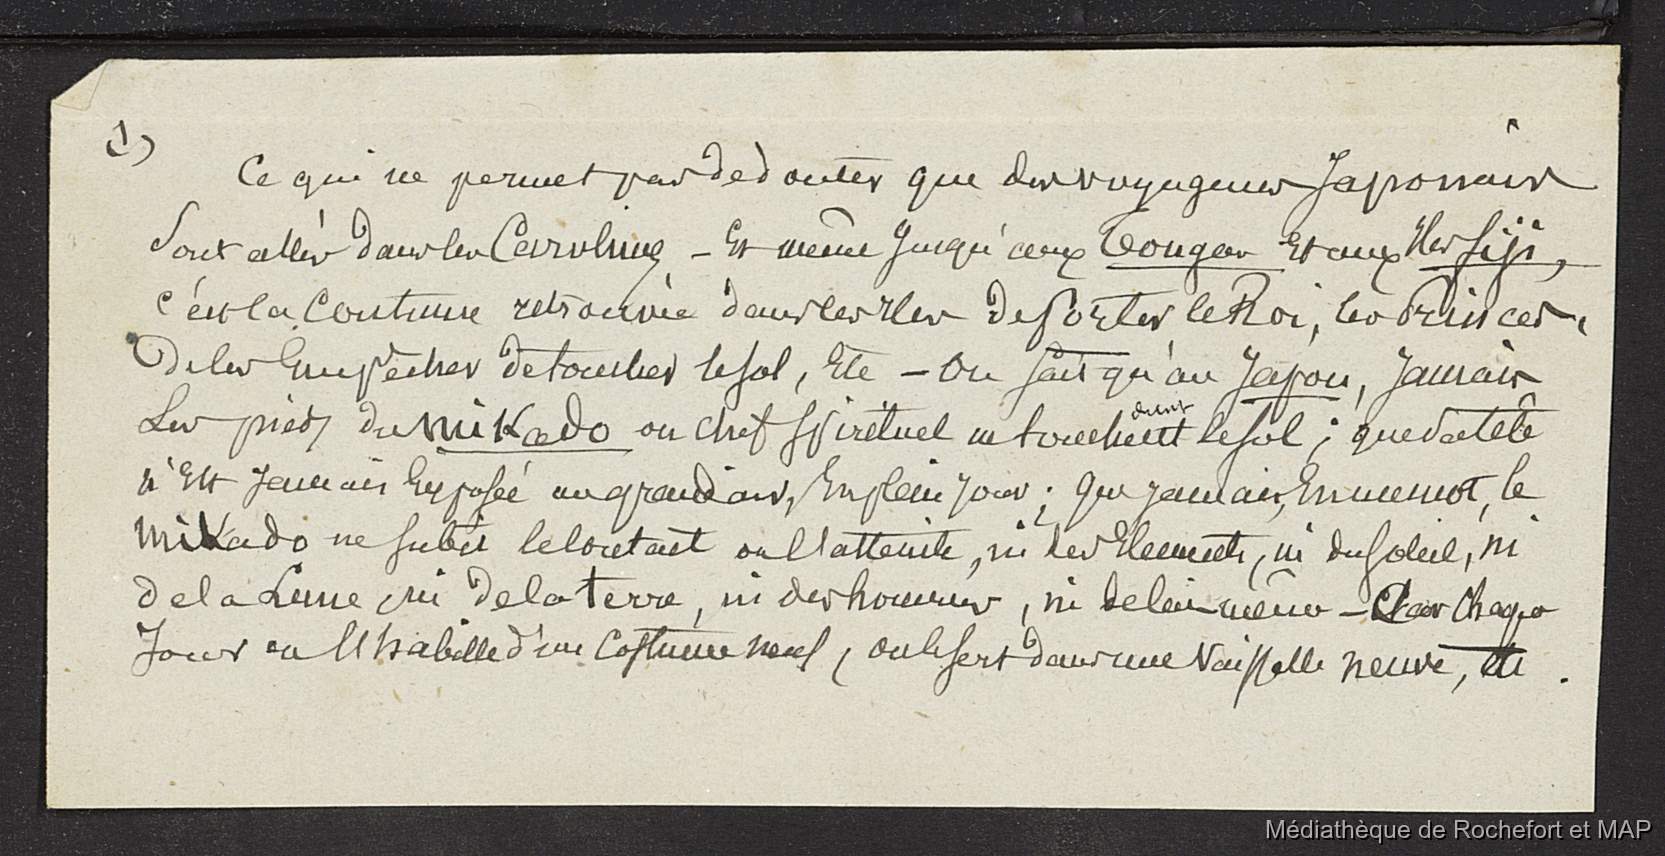 1)
Ce qui ne permet pas de douter que des voyageurs Japonais
sont allés dans les Carolines – Et même jusqu'aux Tongas Et aux Iles fiji,
c'est la Coutume retrouvée dans les Iles de porter le Roi, les Princes,
de les Empêcher de toucher le sol, Etc – On sait qu'au Japon, Jamais
Les pieds du Mikado ou chef spirituel ne touchèrent le sol ; que sa tête
n'Est Jamais Exposée au grand air, En plein jour ; que jamais, En un mot, le
Mikado ne subit le contact ou l'atteinte, ni des Elements, ni du soleil, ni
de la Lune, ni de la terre, ni des hommes, ni de lui-même – Car chaque
Jour on l'habille d'un Costume neuf, on le sert dans une Vaisselle neuve, etc.
Médiathèque de Rochefort et MAP